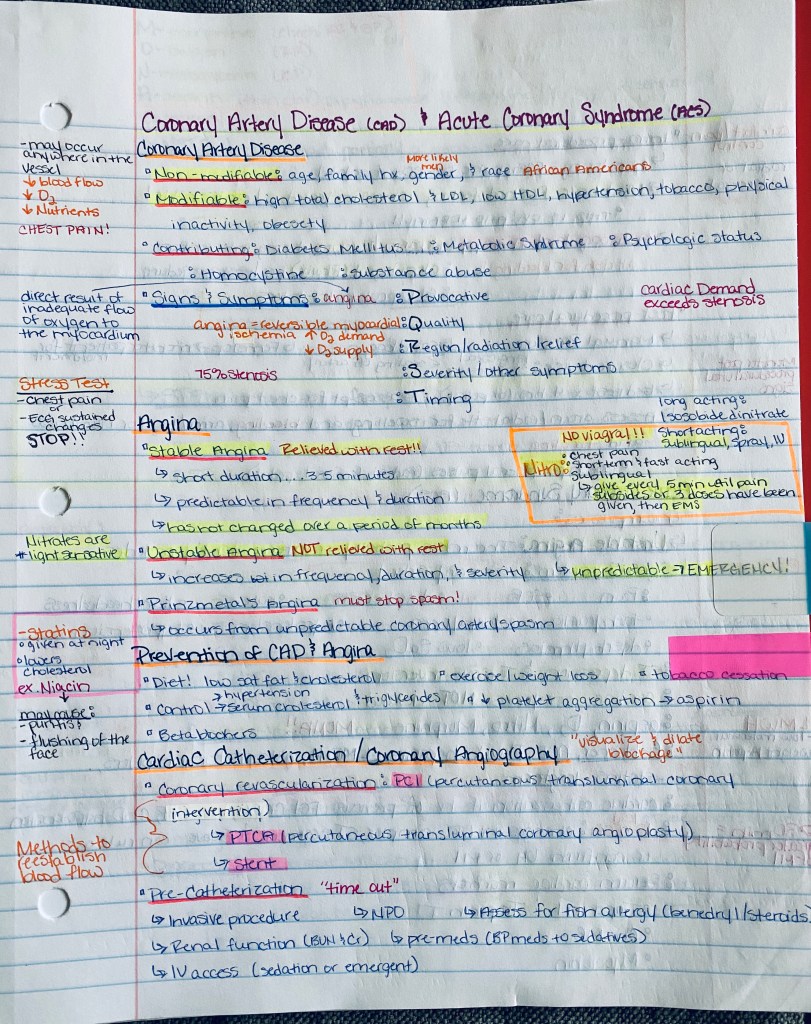 Coronary Artery Disease (CAD) & Acute Coronary Syndrome (ACS)
-may occur anywhere in the vessel
↓ blood flow
↓ O₂
↓ Nutrients
CHEST PAIN!
Coronary Artery Disease
Non-modifiable: age, family hx, gender, & race African Americans
More likely men
Modifiable: high total cholesterol & LDL, low HDL, hypertension, tobacco, physical
inactivity, obesety
Contributing: Diabetes Mellitus... Metabolic Syndrome Psychologic status
Homocystine substance abuse
direct result of
inadequate flow
of oxygen to
the myocardium
Signs & Symptoms: angina Provocative
cardiac Demand
exceeds stenosis
angina = reversible myocardial Quality
ischemia ↑ O₂ demand
↓ O₂ supply Region/radiation/relief
75% stenosis Severity/other symptoms
Timing
Stress Test
-chest pain
or
-ECG sustained
changes
STOP!!
Angina
long acting:
Isosobade dinitrate
Short acting:
sublingual, spray, IV
NO viagra!!
Nitro: chest pain
short term & fast acting
sublingual
↳ give every 5 min until pain
subsides or 3 doses have been
given, then EMS
Stable Angina Relieved with rest!!
↳ short duration... 3-5 minutes
↳ predictable in frequency & duration
↳ has not changed over a period of months
Nitrates are
* light sensative
Unstable Angina NOT relieved with rest
↳ increases in frequency, duration, & severity ↳ unpredictable → EMERGENCY!
Prinzmetal's Angina must stop spasm!
↳ occurs from unpredictable coronary artery spasm
-Statins
given at night
lowers
cholesterol
ex. Niacin
↓
may cause:
- puritis
- flushing of the
face
Prevention of CAD & Angina
Diet! low sat fat & cholesterol exercise/weight loss tobacco cessation
→ hypertension
Control → serum cholesterol & triglycerides ↓ platelet aggregation → aspirin
Beta blockers
Cardiac Catheterization / Coronary Angiography "visualize & dilate
blockage"
Coronary revascularization: PCI (percutaneous transluminal coronary
intervention)
↳ PTCA (percutaneous transluminal coronary angioplasty)
↳ Stent
Methods to
reestablish
blood flow
Pre-Catheterization "time out"
↳ Invasive procedure ↳ NPO ↳ Assess for fish allergy (benedryl/steroids)
↳ Renal function (BUN & Cr) ↳ pre-meds (BP meds to sedatives)
↳ IV access (sedation or emergent)